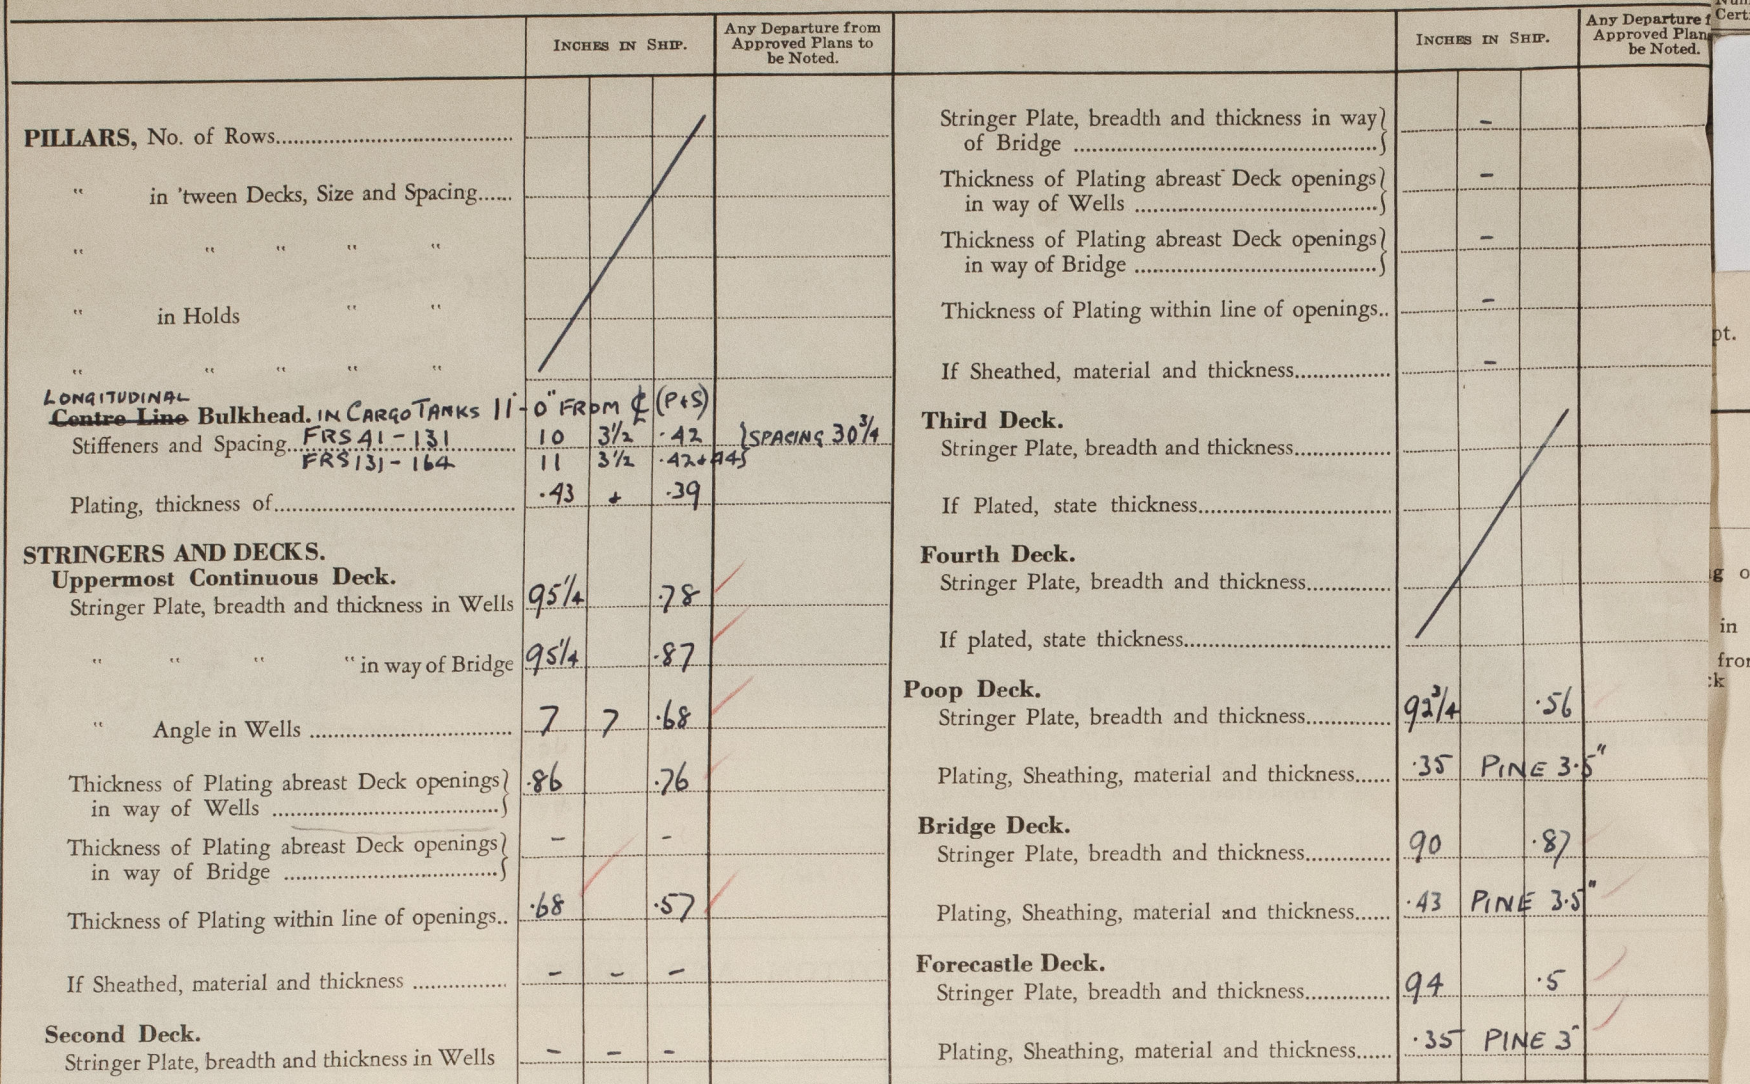 INCHES IN SHIP.
Any Departure from
Approved Plans to
be Noted.
PILLARS, No. of Rows
" in 'tween Decks, Size and Spacing
" " " " "
" in Holds " "
" " " " "
LONGITUDINAL
Centre Line Bulkhead. IN CARGO TANKS 11'-0" FROM ℄ (P+S)
Stiffeners and Spacing FRS 41-131 10 3½ .42 } SPACING 30¾
FRS 131-164 11 3½ .42+.44 }
Plating, thickness of .43 + .39
STRINGERS AND DECKS.
Uppermost Continuous Deck.
Stringer Plate, breadth and thickness in Wells 95¼ .78
" " " " in way of Bridge 95¼ .87
" Angle in Wells 7 7 .68
Thickness of Plating abreast Deck openings }
in way of Wells } .86 .76
Thickness of Plating abreast Deck openings }
in way of Bridge } - -
Thickness of Plating within line of openings .68 .57
If Sheathed, material and thickness - - -
Second Deck.
Stringer Plate, breadth and thickness in Wells - - -
INCHES IN SHIP.
Any Departure f
Approved Plan
be Noted.
Stringer Plate, breadth and thickness in way }
of Bridge } -
Thickness of Plating abreast Deck openings }
in way of Wells } -
Thickness of Plating abreast Deck openings }
in way of Bridge } -
Thickness of Plating within line of openings -
If Sheathed, material and thickness -
Third Deck.
Stringer Plate, breadth and thickness
If Plated, state thickness
Fourth Deck.
Stringer Plate, breadth and thickness
If plated, state thickness
Poop Deck.
Stringer Plate, breadth and thickness 92¾ .56
Plating, Sheathing, material and thickness .35 PINE 3.5"
Bridge Deck.
Stringer Plate, breadth and thickness 90 .87
Plating, Sheathing, material and thickness .43 PINE 3.5"
Forecastle Deck.
Stringer Plate, breadth and thickness 94 .5
Plating, Sheathing, material and thickness .35 PINE 3"
Cert
pt.
g o
in
fro
ck